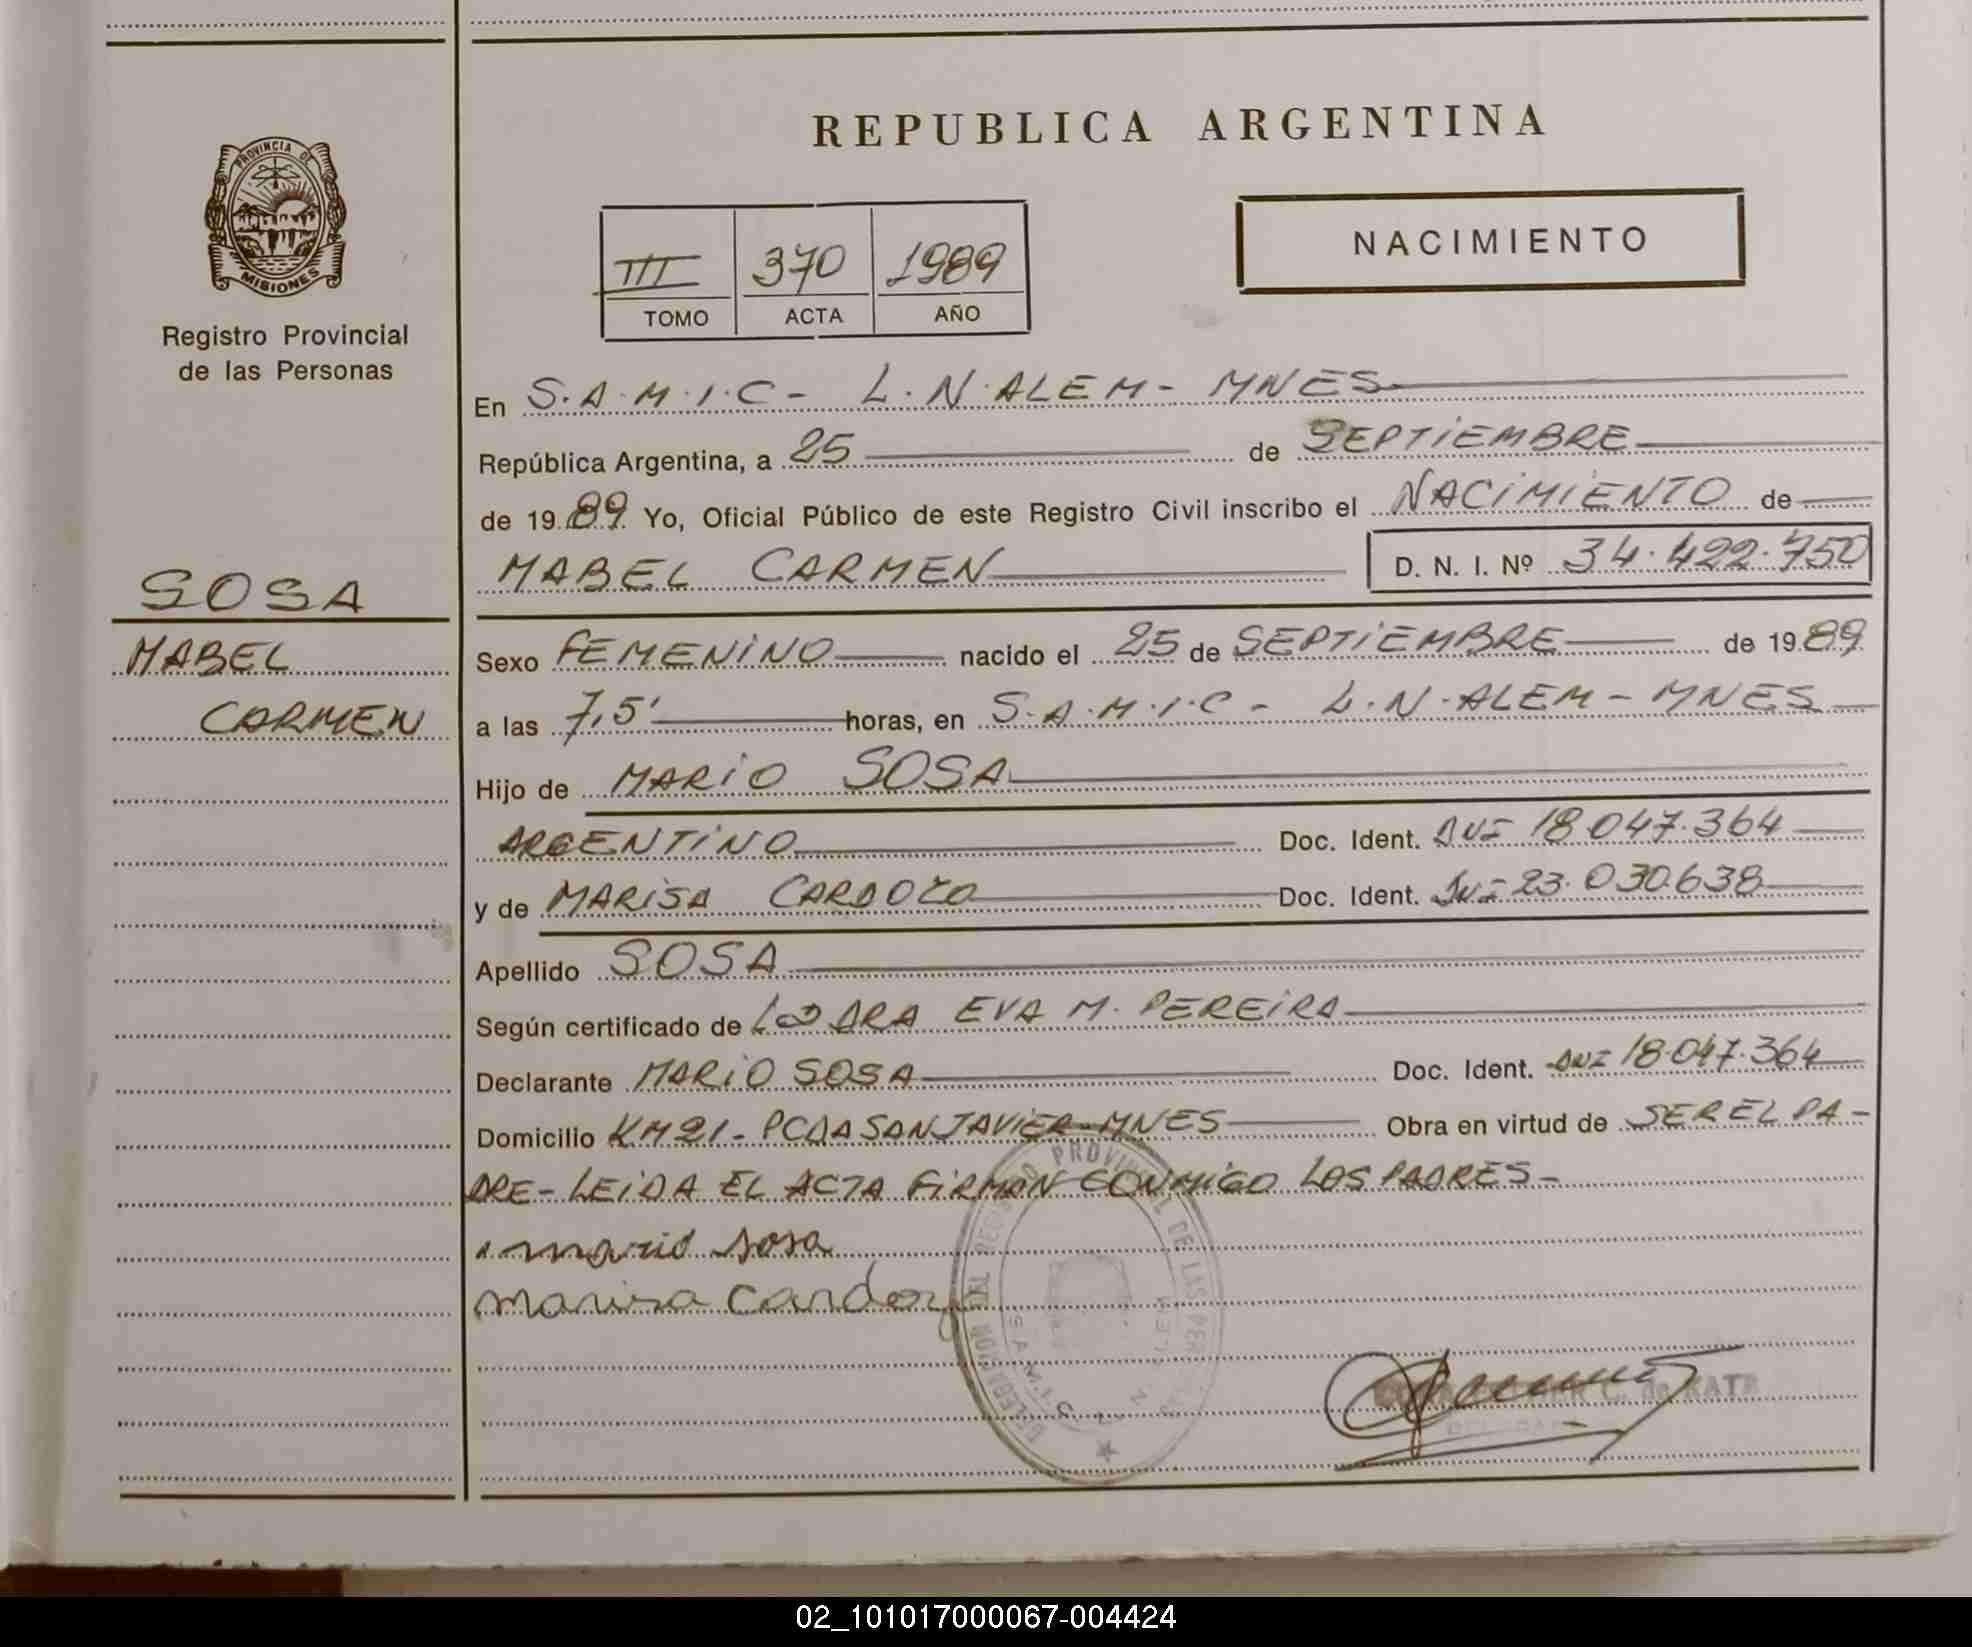 REPUBLICA ARGENTINA
PROVINCIA DE
MISIONES
Registro Provincial
de las Personas
III 370 1989
TOMO ACTA AÑO
NACIMIENTO
En S.A.M.I.C - L.N.ALEM - MNES
República Argentina, a 25 de SEPTIEMBRE
de 1989 Yo, Oficial Público de este Registro Civil inscribo el NACIMIENTO de
MABEL CARMEN D. N. I. Nº 34.422.750
SOSA
MABEL
CARMEN
Sexo FEMENINO nacido el 25 de SEPTIEMBRE de 1989
a las 7,5' horas, en S.A.M.I.C - L.N.ALEM - MNES
Hijo de MARIO SOSA
ARGENTINO Doc. Ident. DNI 18.047.364
y de MARISA CARDOZO Doc. Ident. DNI 23.030.638
Apellido SOSA
Según certificado de DRA EVA M. PEREIRA
Declarante MARIO SOSA Doc. Ident. DNI 18.047.364
Domicilio KM 21 - PCDA SAN JAVIER - MNES Obra en virtud de SER EL PA-
DRE - LEIDA EL ACTA FIRMAN CONMIGO LOS PADRES -
mario sosa
marisa Cardozo
DELEGACION DEL REGISTRO PROVINCIAL DE LAS
S.A.M.I.C.
C. de KATZ
02_101017000067-004424